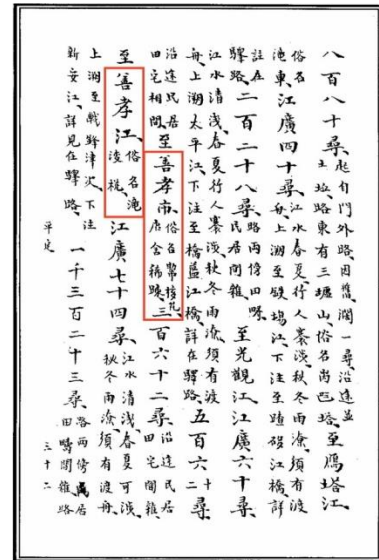 八百八十尋起自門外路因舊濶一尋沿途並土垃路東有三壚山俗名崗邑塔至鴈塔江
俗名滝東江廣四十尋江水春夏行人褰淡秋冬雨潦須有渡舟上溯至鉄塲江下注至江橋詳
註在驛路二百二十八尋路兩傍田疇民居間雜至光觀江江廣六十尋
江水清浅春夏行人褰淡秋冬雨潦須有渡舟上溯太平江下注至橋蓝江橋詳在驛路五百六十二尋
沿途民居田宅相間至善孝市俗名幣核花店舍稱踈三百六十二尋沿途民居田宅間雜
至善孝江俗名滝淩梘江廣七十四尋江水清浅春夏可淡秋冬雨潦須有渡舟
上溯至戰野津次下注新安江詳見在驛路一千三百二十三尋路兩傍民居田疇間雜路
平定
三十二